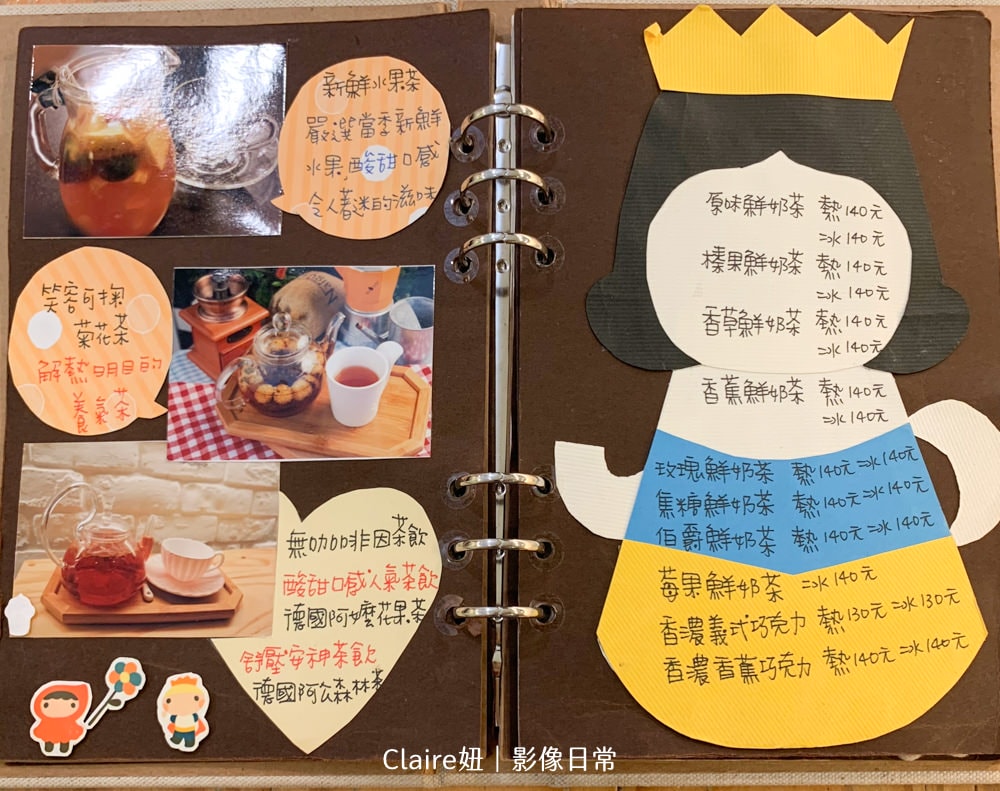 新鮮水果茶
嚴選當季新鮮
水果,酸甜口感
令人著迷的滋味
笑容可掬
菊花茶
解熱明目的
養氣茶
無咖啡因茶飲
酸甜口感人氣茶飲
德國阿嬤花果茶
舒壓安神茶飲
德國阿公森林茶
原味鮮奶茶 熱140元
冰140元
榛果鮮奶茶 熱140元
冰140元
香草鮮奶茶 熱140元
冰140元
香蕉鮮奶茶 熱140元
冰140元
玫瑰鮮奶茶 熱140元 冰140元
焦糖鮮奶茶 熱140元 冰140元
伯爵鮮奶茶 熱140元 冰140元
莓果鮮奶茶 冰140元
香濃義式巧克力 熱130元 冰130元
香濃香蕉巧克力 熱140元 冰140元
Claire妞|影像日常